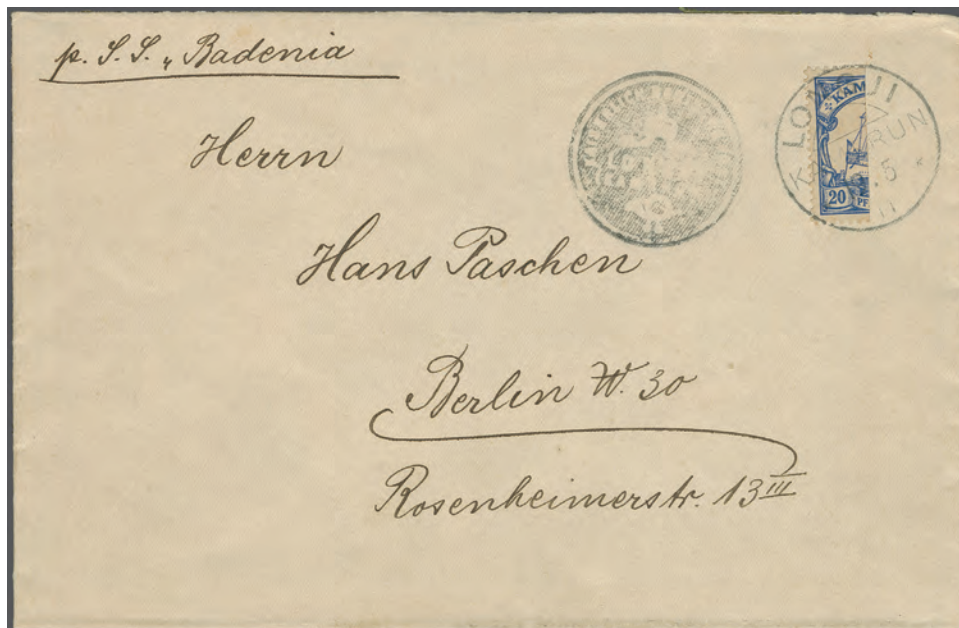 p. S.S. „Badenia
Herrn
Hans Paschen
Berlin W. 30
Rosenheimerstr. 13 III
KAM
20 PF
LO JI
K RUN
5
11